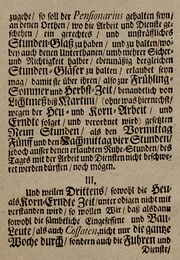 zugehe/ so soll der Pensionarius gehalten seyn/
an denen Orten/ wo die Arbeit und Dienste ge-
schehen/ ein gerechtes/ und unsträfliches
Stunden-Glaß zu haben/ und zu halten/ wo-
bey auch denen Unterthanen/ umb mehrer Sicher-
und Richtigkeit halber/ ebenmäßig dergleichen
Stunden-Gläser zu halten/ erlaubet seyn
mag/ damit sie über ihn/ also zur Frühling-
Sommer und Herbst-Zeit/ benanntlich von
Lichtmeß biß Martini/ (ohne was hiernechst/
wegen der Heu- und Korn-Arbeit/ und
Erndte folget/ und verordnet wird) gesetzten
Neun Stunden/ als den Vormittag
Fünff und den Nachmittag vier Stunden/
jedoch ausser denen erlaubten Ruhe-Stunden/ des
Tages mit der Arbeit und Diensten nicht beschwe-
ret werden dürffen/ noch mögen.
III.
Und weilen Drittens/ sowohl die Heu-
als Korn-Erndte/ unter obigen nicht mit
verstanden wird/ so wollen Wir/ daß alsdann
sowohl die sämbtliche Eingesessene und Bau-
Leute/ als auch Cossaten/ nicht nur die gantze
Woche durch/ sondern auch die Fuhren und
Dienste/